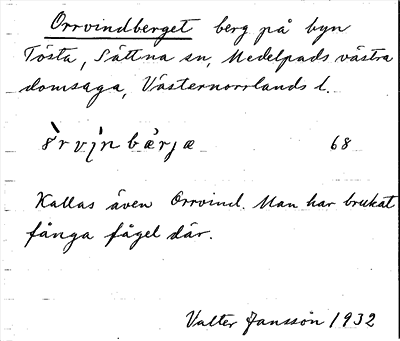 Orrvindberget berg på byn
Tösta, Sättna sn, Medelpads västra
domsaga, Västernorrlands l.
òrvi̩n bærjæ 68
Kallas även Orrvind. Man har brukat
fånga fågel där.
Valter Jansson 1932